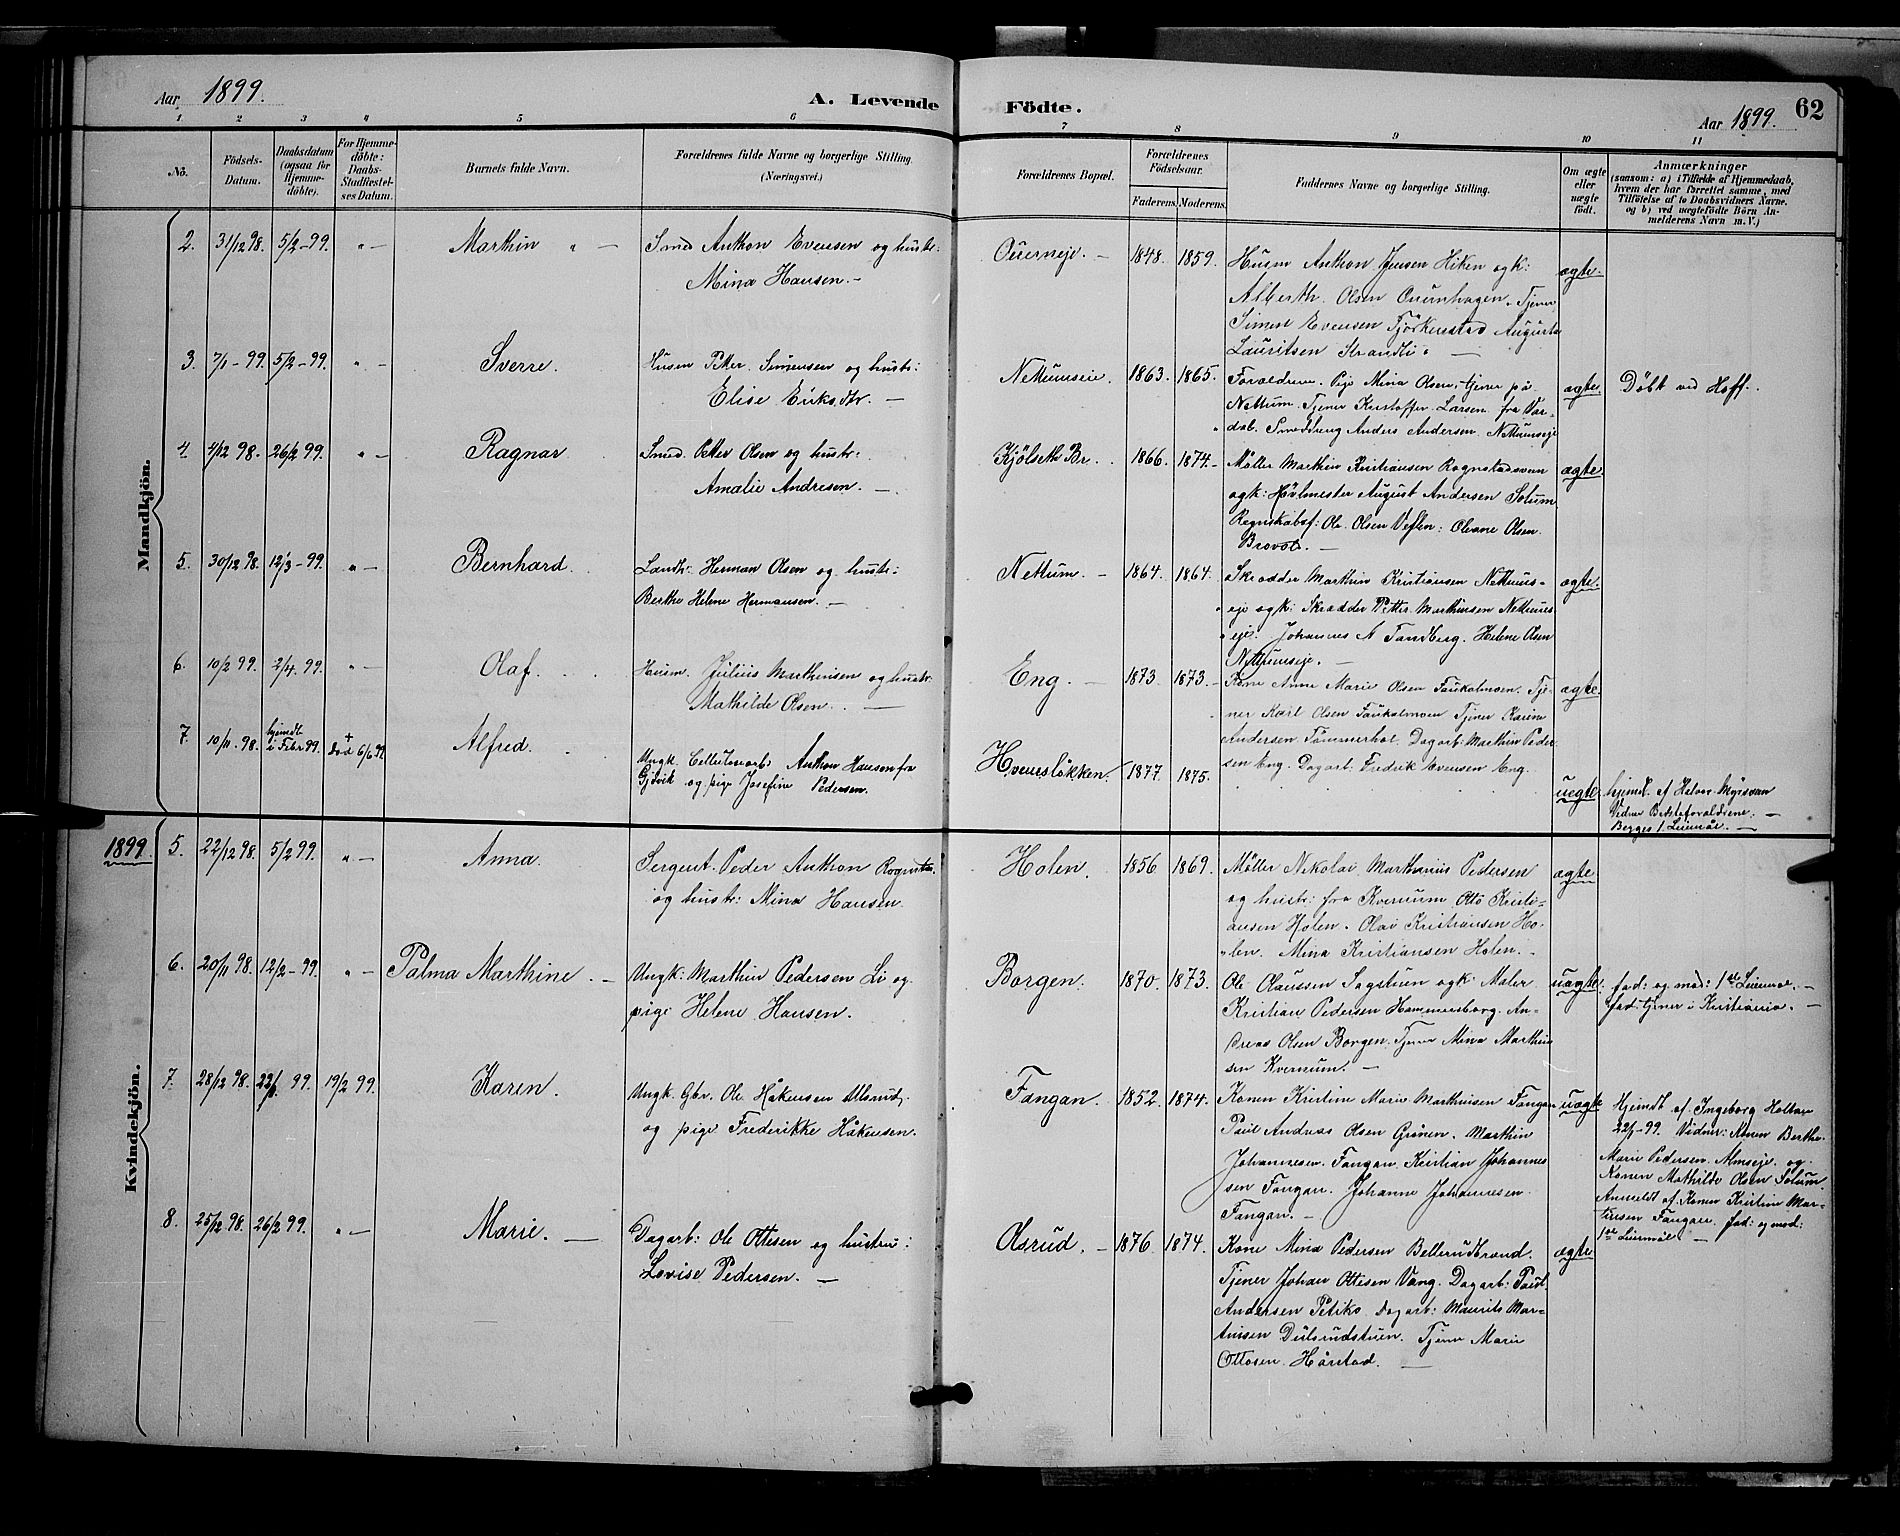 Aar 1899.
A. Levende Födte.
Aar 1899.
62
1 2 3 4 5 6 7 8 9 10 11
No.
Födsels-
Datum.
Daabsdatum
(ogsaa for
Hjemme-
döbte).
For Hjemme-
döbte:
Daabs-
Stadfæstel-
ses Datum.
Barnets fulde Navn.
Forældrenes fulde Navne og borgerlige Stilling.
(Næringsvei.)
Forældrenes Bopæl.
Forældrenes
Födselsaar.
Faderens. Moderens.
Faddernes Navne og borgerlige Stilling.
Om ægte
eller
uægte
födt.
Anmærkninger
(saasom: a) i Tilfælde af Hjemmedaab,
hvem der har forrettet samme, med
Tilföielse af to Daabsvidners Navne.
og b) ved uægtefödte Börn An-
melderens Navn m. V.)
Mandkjön.
2. 31/12 98. 5/2 - 99. " - Marthin " - Smed Anthon Evensen og hustr:
Mina Hansen. -
1848. 1859. Husm Anthon Jensen Hiken og k:
Alberth. Olsen Tjener
Simen Evensen Augusta
Lauritsen Strandli. -
ægte.
3. 7/1 - 99. 5/2 - 99. " - Sverre. Husm Petter Simensen og hustr:
Elise Eriksdtr. -
Nettumseie. 1863. 1865. Forældrene. Pige Mina Olsen, tjener på
Nettum. Tjener Kristoffer Larsen fra Var-
dal. Anders Andersen. Nettumseje
ægte. Döbt ved Hoff.
4. 4/12 98. 26/2 99. " - Ragnar Smed Petter Olsen og hustr:
Amalie Andresen. -
Kjölseth Br. 1866. 1874. - Möller Marthin Kristiansen Rognstadsveen
og k: Hövlmester August Andersen Solum
Regnskabsf: Ole Olsen Veflen: Oleane Olsen
Brovold. -
ægte.
5. 30/12 98. 12/3 - 99. " - Bernhard. Landh. Herman Olsen og hustr:
Berthe Helene Hermansen. -
Nettum. - 1864. 1864. Skrædder Marthin Kristiansen Nettums-
eje og k: Skrædder Petter Marthinsen Nettums
eje. Johannes A Fandberg. Helene Olsen
Nettumseje. -
ægte.
6. 10/2 99. 2/4. 99. " - Olaf. Husm. Julius Marthinsen og hustr:
Mathilde Olsen. -
Eng. - 1873. 1873. - Kone Anne Marie Olsen Faukalmoen. Tje-
ner Karl Olsen Faukalmoen Tjener Karine
Andersen Tömmerhol. Dagarb: Marthin Peder-
sen Eng. Dagarb: Fredrik Evensen Eng.
ægte.
7. 10/11. 98. hjemdt
i Febr 99. + död 6/6 99 Alfred. Ungk. Cellulosearb: Anthon Hansen fra
Gjövik og pige Josefine Pedersen.
Hvenesløkken. 1877. 1875.
uægte. hjemd. af Helene
Vidner Bedsteforældrene: -
Begges 1. Leiemål. -
1899.
Kvindekjön.
5. 22/12 98. 5/2 99. " - Anna. Sergent. Peder Anthon
og hustr: Mina Hansen.
Holen. 1856. 1869. Möller Nikolai Marthinius Pedersen
og hustr: fra Kvernum Otto Kristi-
ansen Holen. Olai Kristiansen Ho-
len. Mina Kristiansen Holen. -
ægte
6. 20/11 98. 12/2 - 99. " - Palma Marthine. - Ungk: Marthin Pedersen Li og
pige Helene Hansen.
Borgen. 1870. 1873. Ole Olaussen Sagstuen og k: Maler
Kristian Pedersen Hammersborg. An-
dreas Olsen Borgen. Tjener Mina Marthin
sen Kvernum. -
uægte. fad: og mod: 1ste Leiermål. -
fad: tjener i Kristiania. -
7. 28/12 98. 22/1 99. 19/2 99. Karen. Ungk. Gbr. Ole Håkensen Ulsrud.
og pige Frederikke Håkensen.
Fangan. 1852. 1874. Konen Kristine Marie Marthinsen Fangan
Paul Andreas Olsen Grönen. Marthin
Johannesen. Fangan. Kristian Johannes
sen Fangan. Johanne Johannesen
Fangan. -
uægte Hjemdt af Ingeborg
22/1 - 99. Vidner: Konen Berthe
Marie Pedersen. Almseje. og
Konen Mathilde Olsen Solum.
Anmeldt af Konen Kristine Mar-
tinsen Fangan. fad: og mod:
1ste Leiermål -
8. 25/12 98. 26/2 99. " - Marie. - Dagarb: Ole Ottesen og hustru:
Lovise Pedersen. -
Olsrud. - 1876. 1874. Kone Mina Pedersen Bellerudbrænd.
Tjener Johan Ottesen Vang. Dagarb: Paul
Andersen Dagarb: Maurits Mar-
tinsen Dulsrudstuen. Tjener Marie
Ottosen. Hårstad. -
ægte